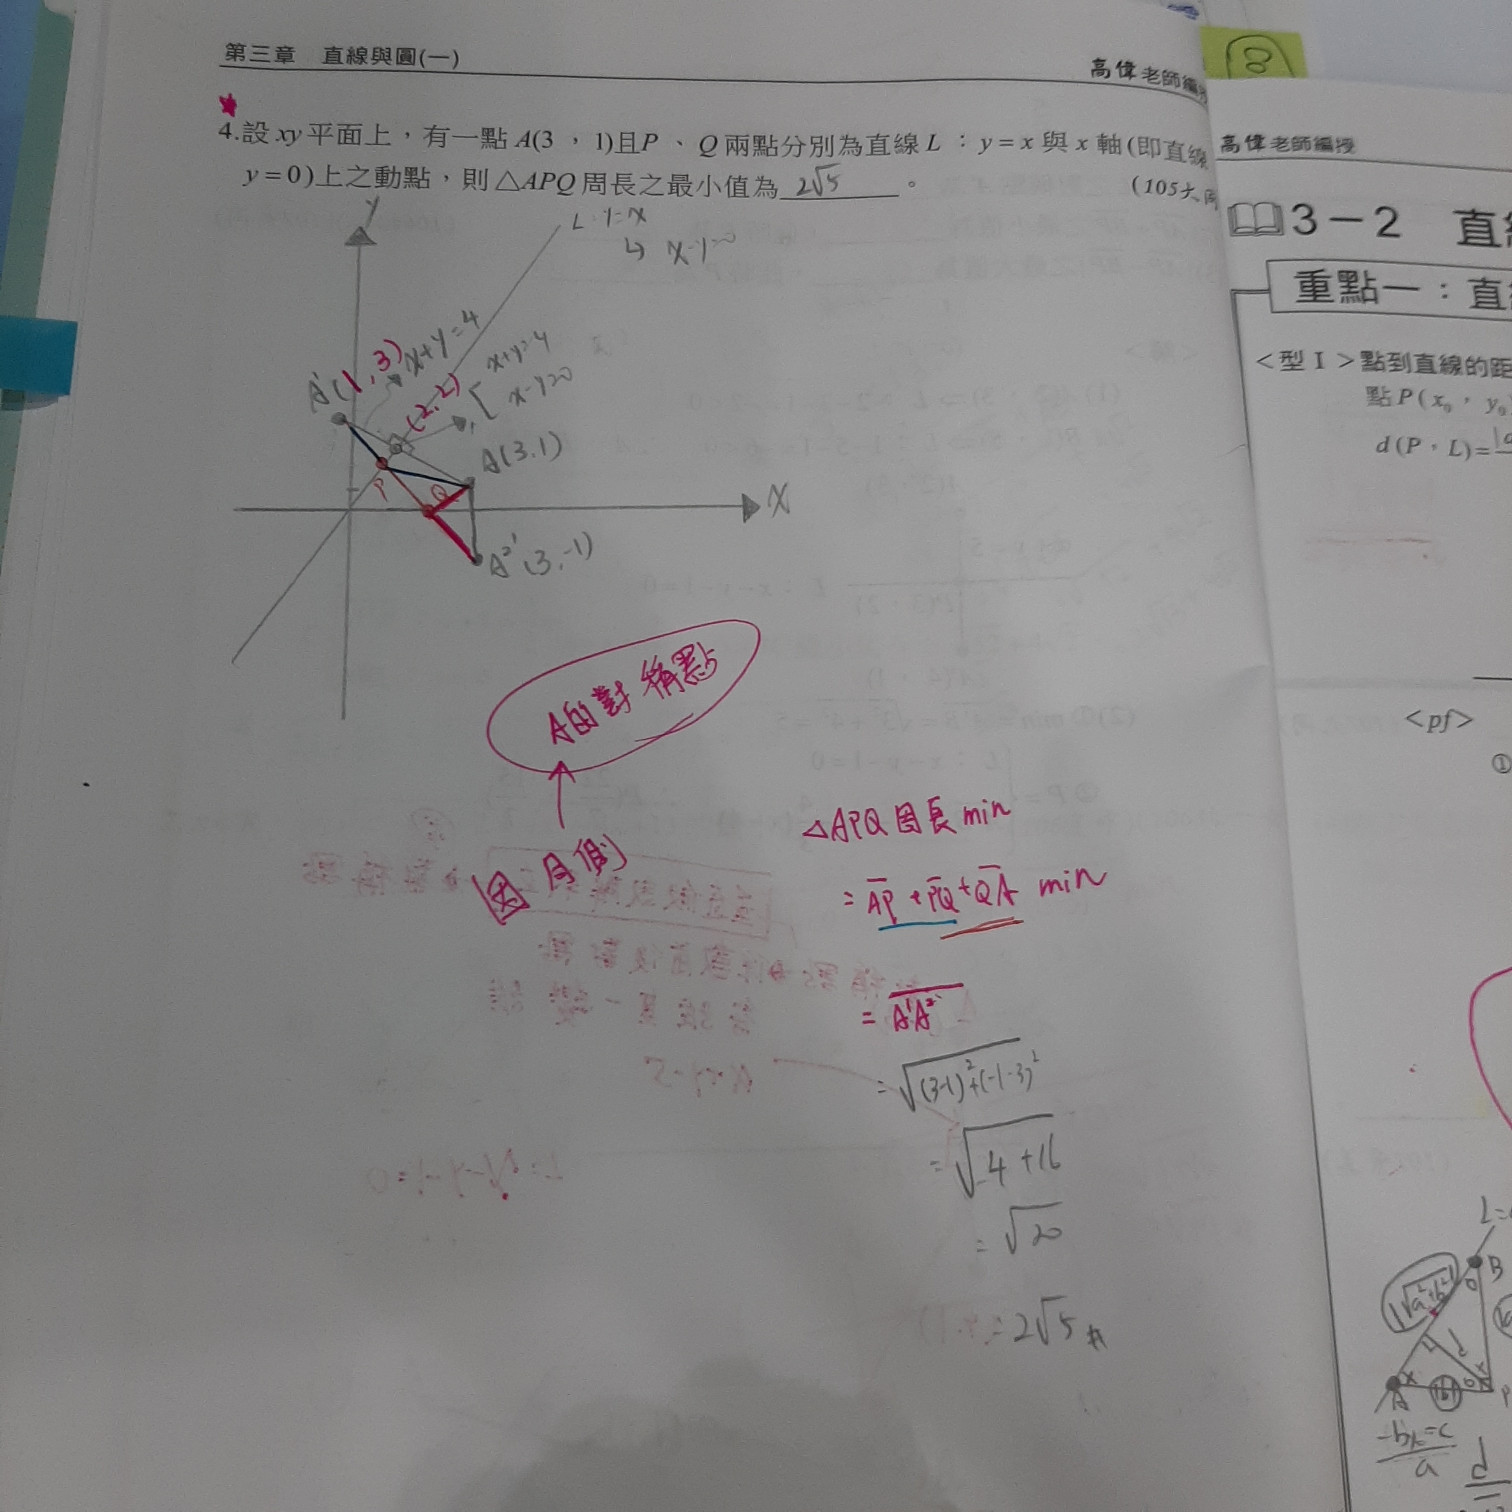 第三章 直線與圓(一)
高偉老師編
4.設 xy 平面上,有一點 A(3,1)且P、Q 兩點分別為直線 L:y=x 與 x 軸(即直線
y=0)上之動點,則△APQ 周長之最小值為 2√5 。 (105大同
y
L:y=x
↳ x-y=0
x+y=4
A'(1,3)
(2,2)
x+y=4
x-y=0
A(3,1)
P
Q
X
A²'(3,-1)
A的對稱點
因同側
△APQ周長min
= AP + PQ + QA min
= A'A²'
= √(3-1)²+(-1-3)²
= √4+16
= √20
= 2√5 #
8
高偉老師編授
3-2 直
重點一:直
<型Ⅰ>點到直線的距
點P(x₀,y₀
d(P,L)=
<pf>
①
B
√a²+b²
A
P
-bk=c
a
d